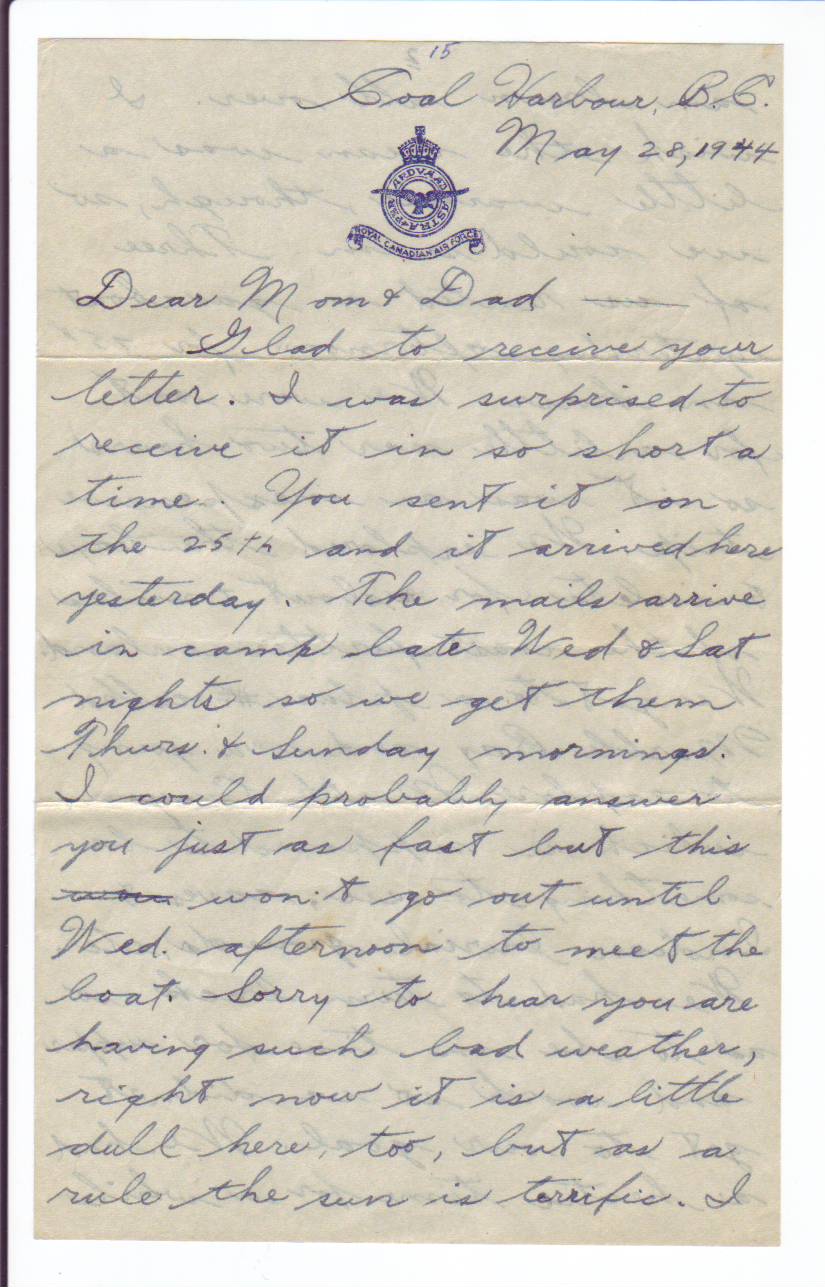 15
Coal Harbour, B.C.
May 28, 1944
PER ARDVA AD ASTRA
ROYAL CANADIAN AIR FORCE
Dear Mom & Dad,
Glad to receive your
letter. I was surprised to
receive it in so short a
time. You sent it on
the 25th and it arrived here
yesterday. The mails arrive
in camp late Wed & Sat
nights so we get them
Thurs. & Sunday mornings.
I could probably answer
you just as fast but this
won't go out until
Wed. afternoon to meet the
boat. Sorry to hear you are
having such bad weather,
right now it is a little
dull here, too, but as a
rule the sun is terrific. I